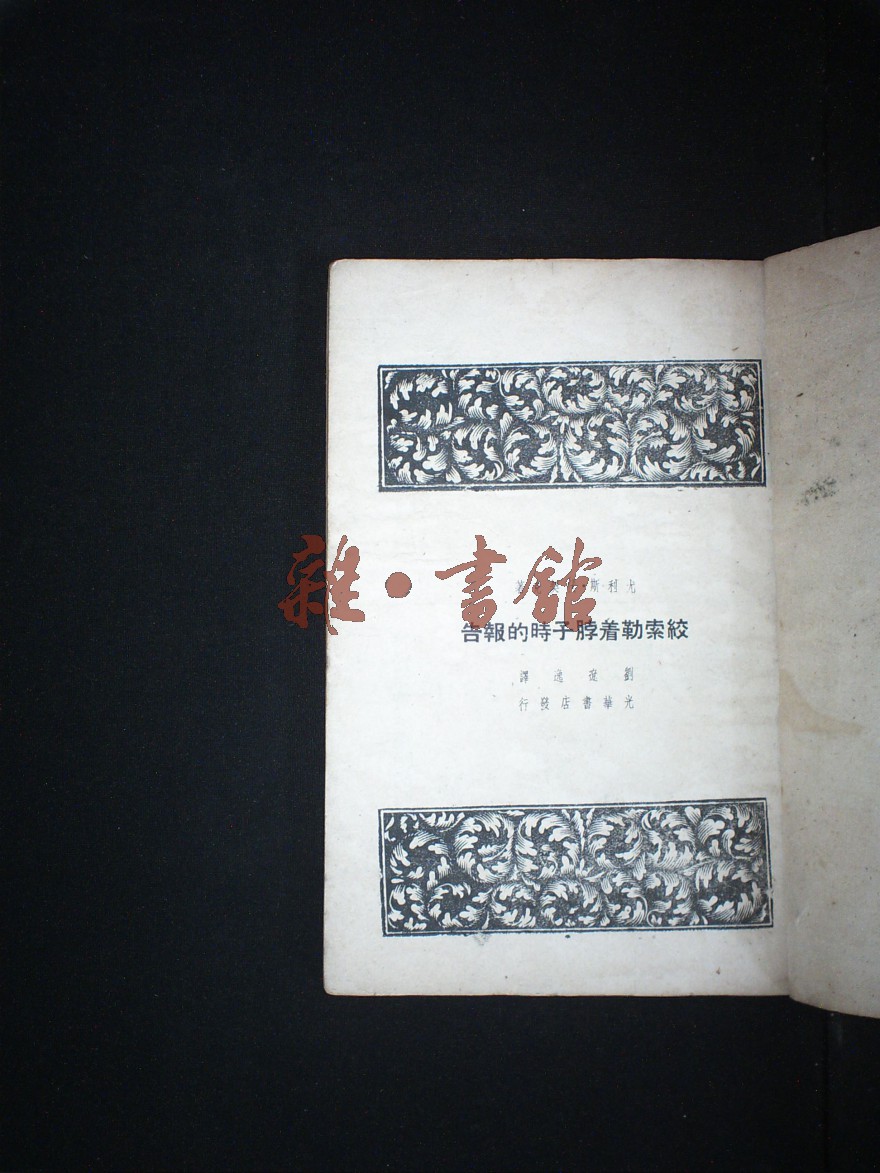 尤利斯·著
絞索勒着脖子時的報告
劉遼逸譯
光華書店發行
雜·書館